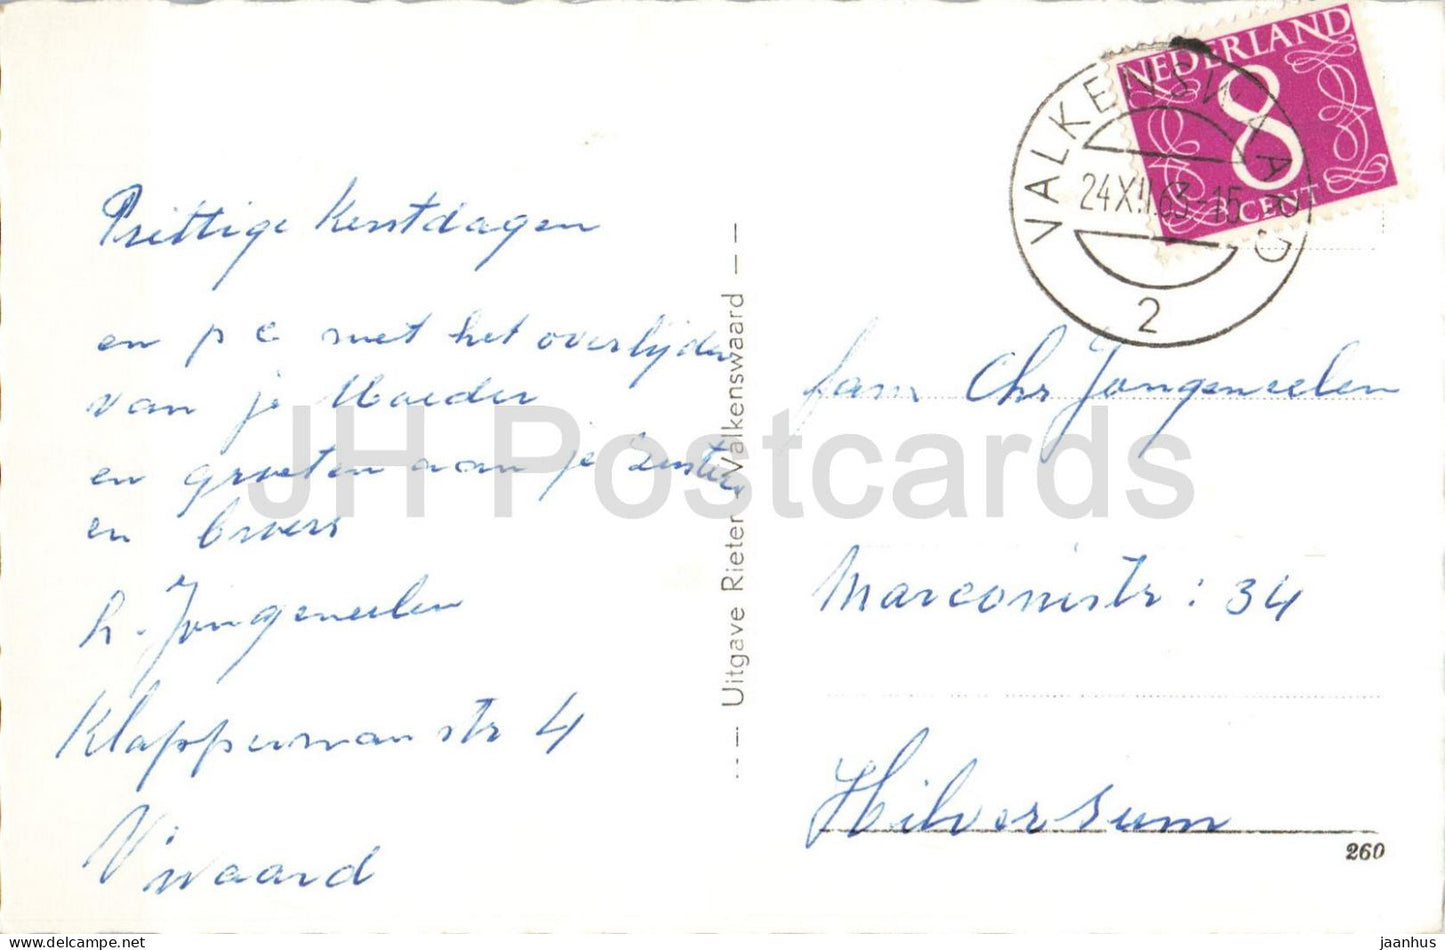 Prettige Kerstdagen
en p c met het overlijden
van je Moeder
en groeten aan je Zusters
en broers
h. Jongeneelen
Klappermanstr 4
V'waard
Uitgave Rieter Valkenswaard
NEDERLAND
8
8 CENT
VALKENSWAARD
24.XII.63-15
2
fam Chr Jongeneelen
Marconistr: 34
Hilversum
260
JH Postcards
www.delcampe.net
jaanhus